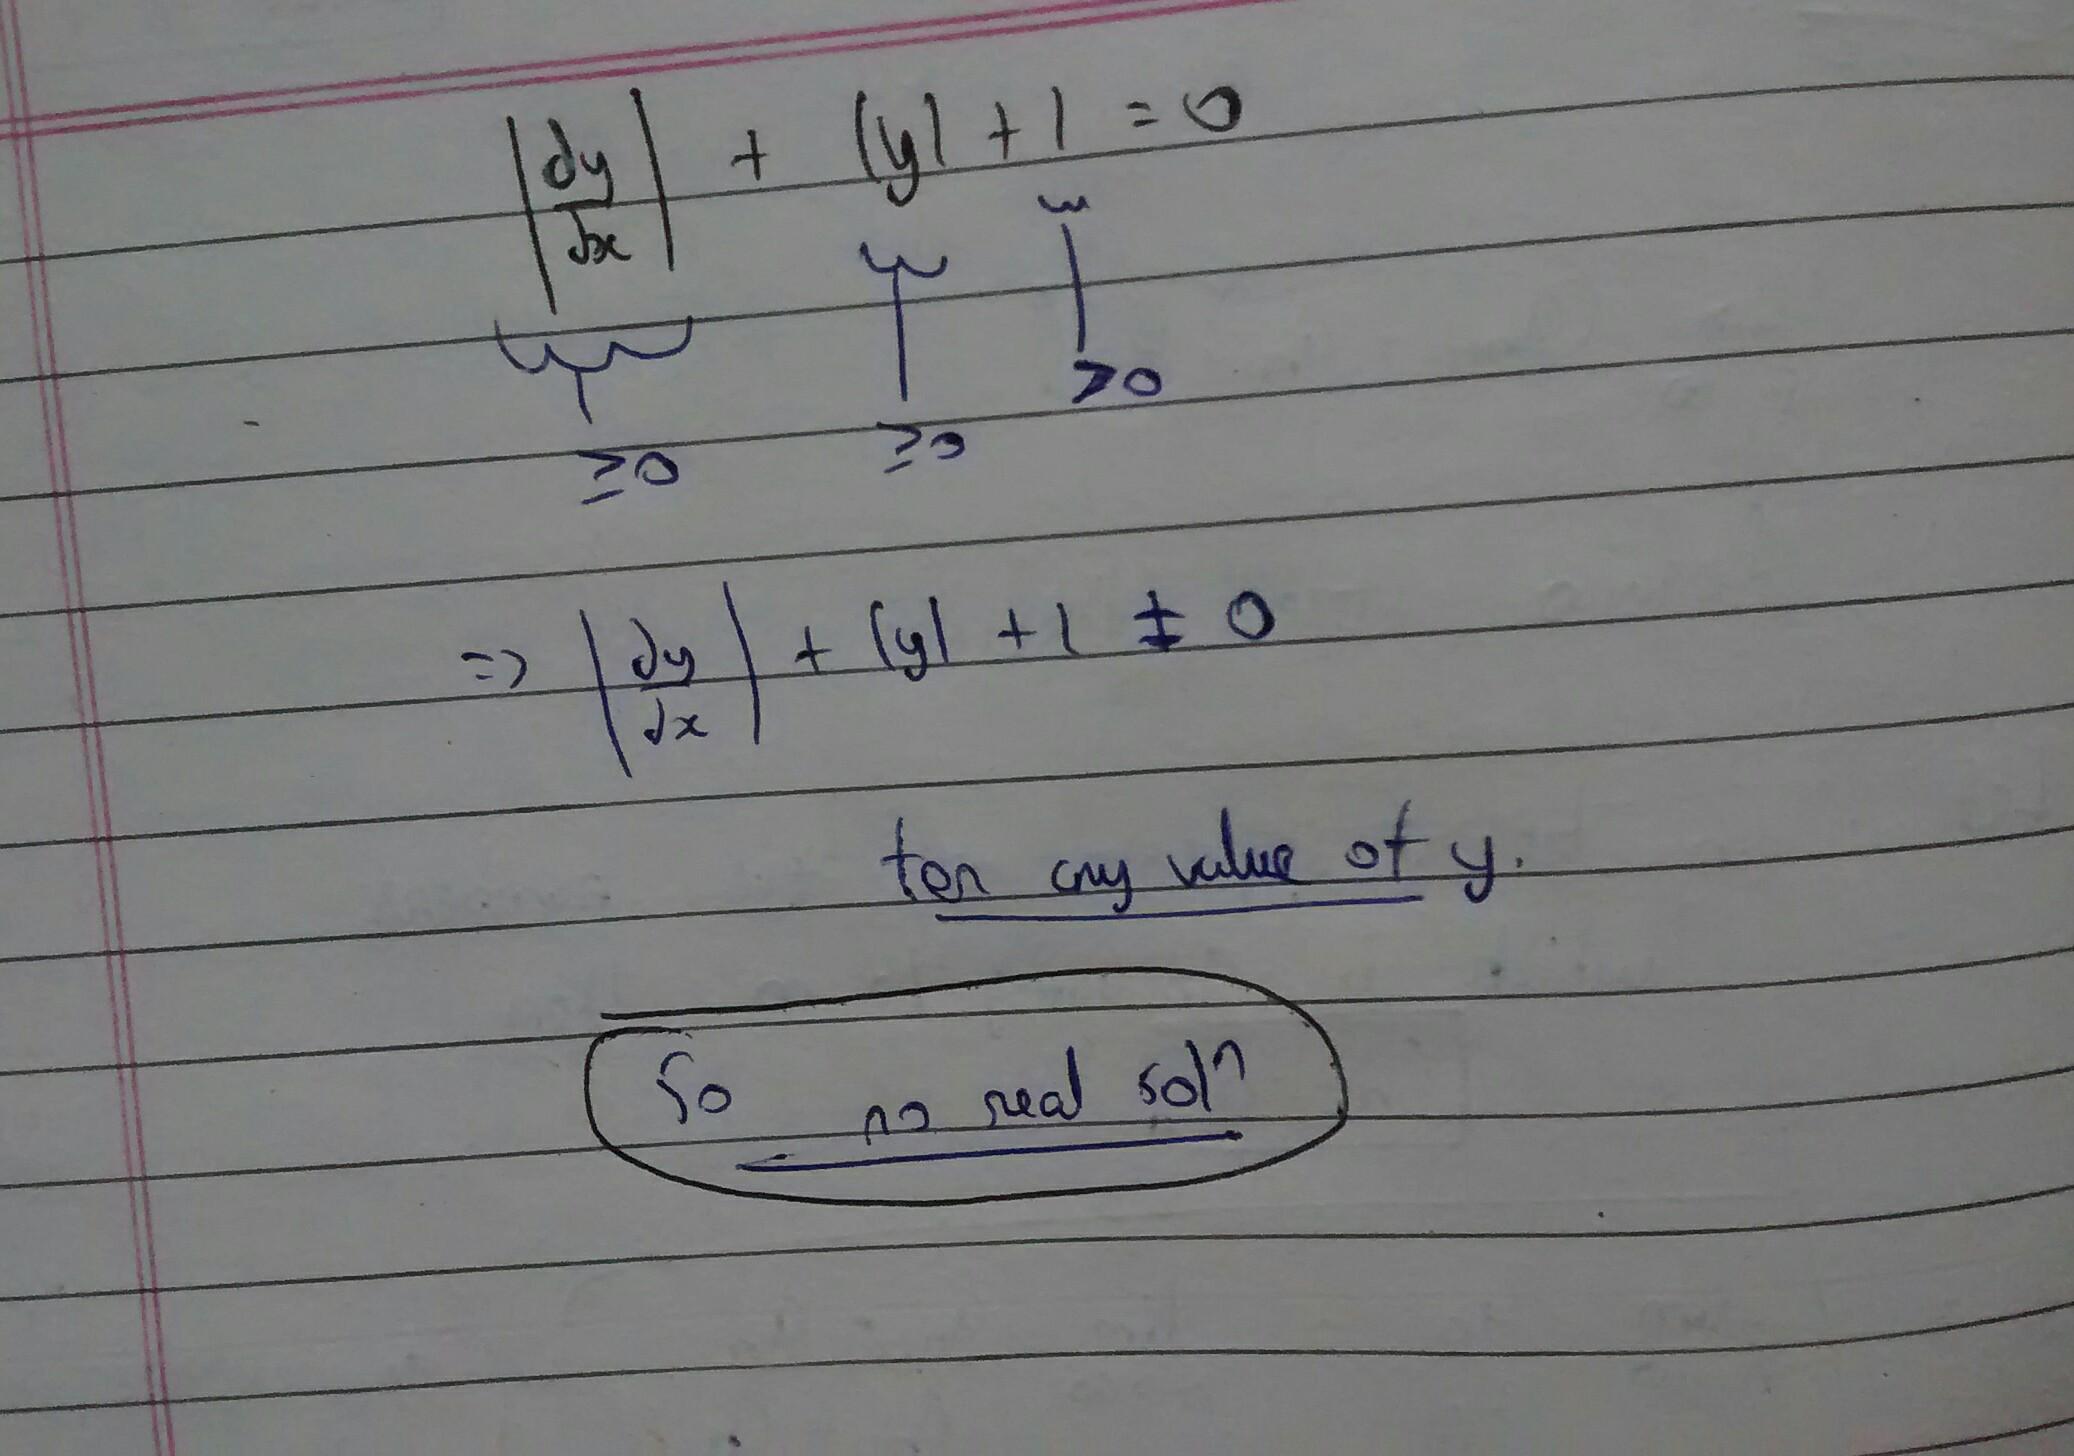 |dy/dx| + |y| + 1 = 0
≥0 ≥0 >0
=> |dy/dx| + |y| + 1 ≠ 0
for any value of y.
So no real solⁿ